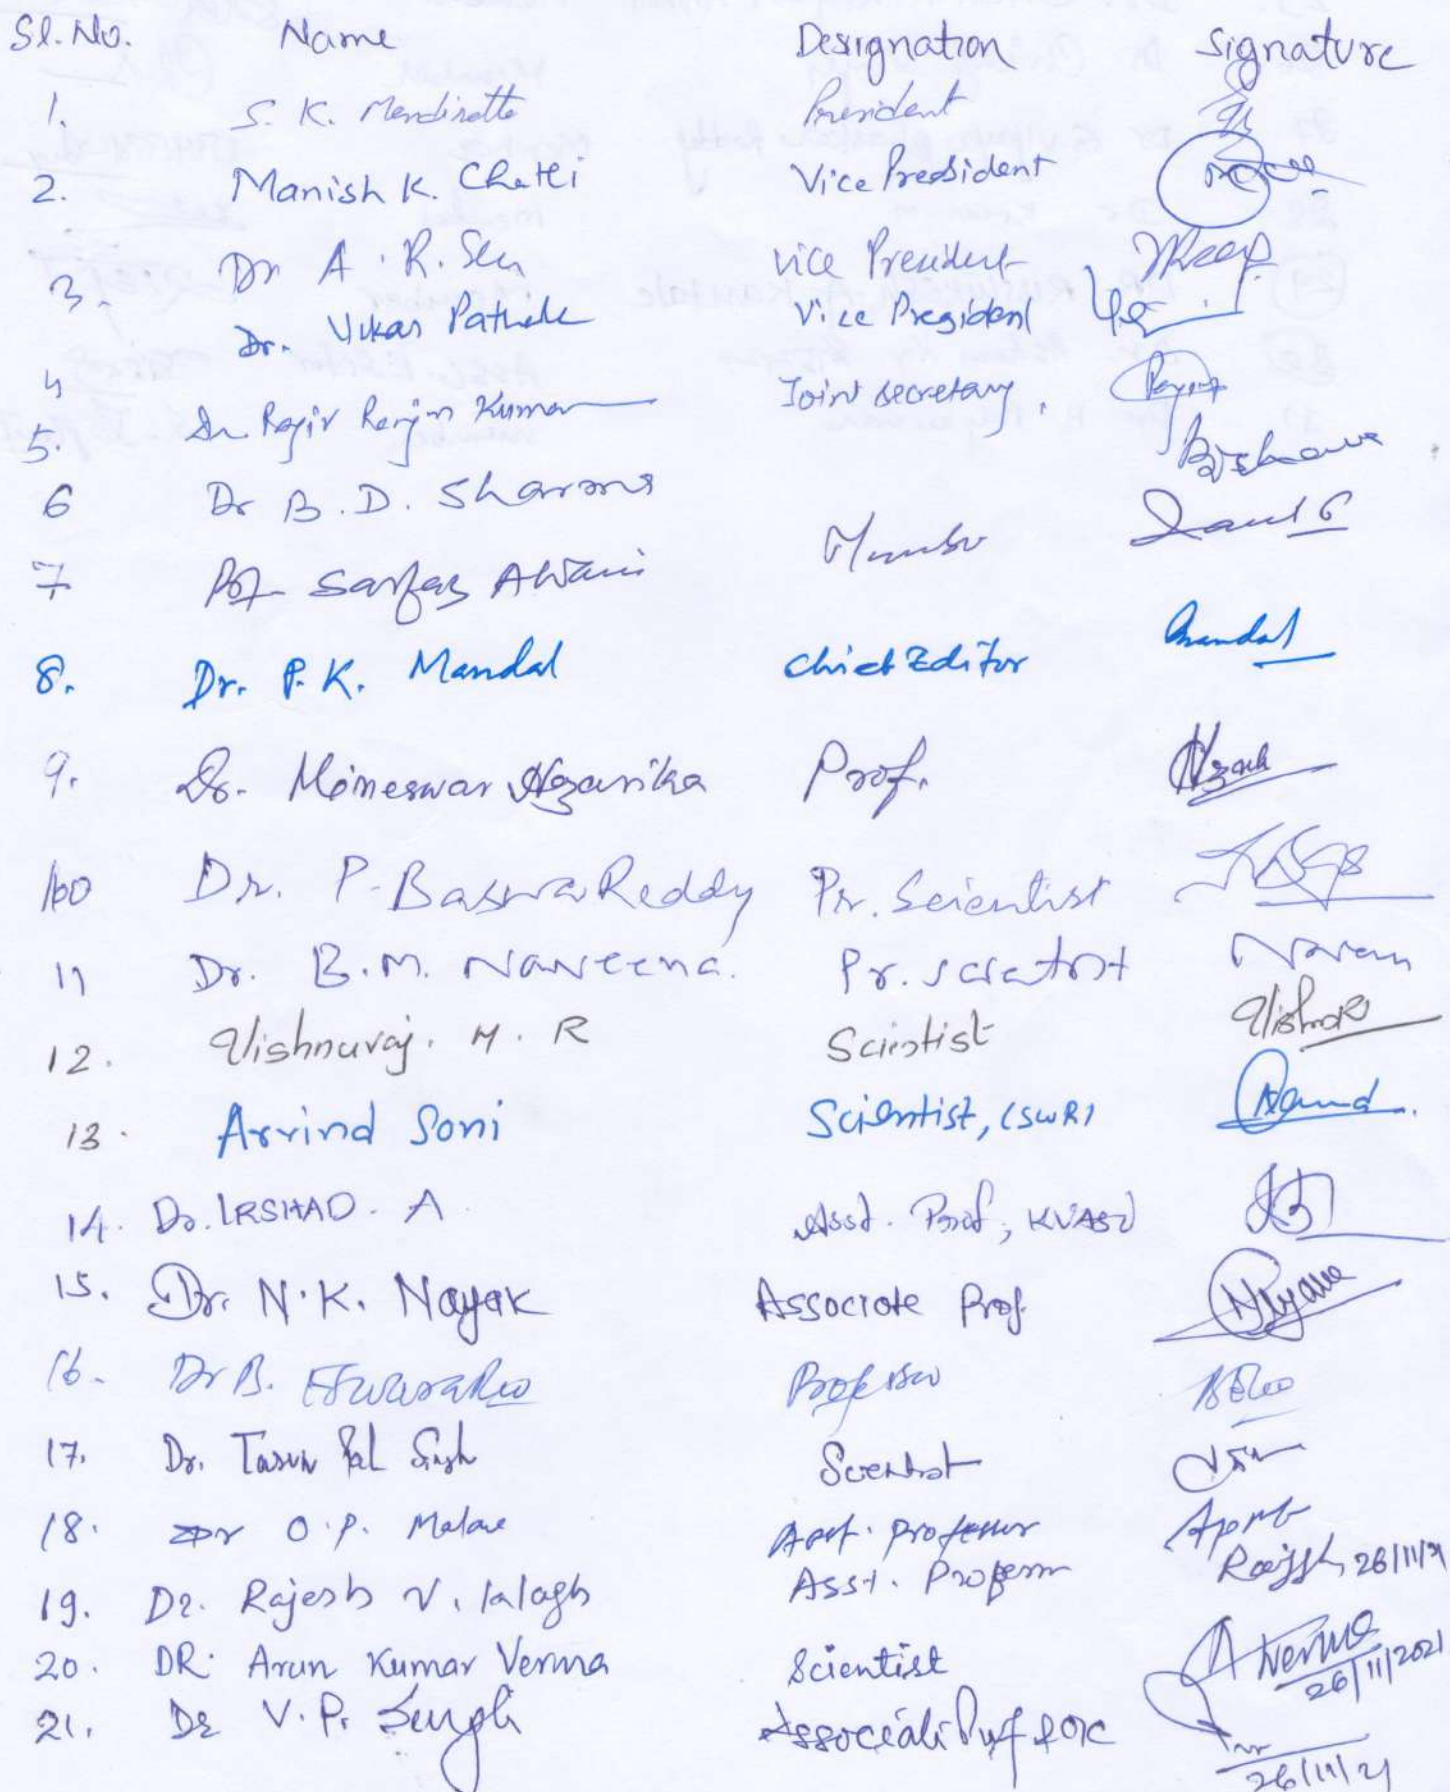 Sl. No. Name Designation Signature
1. S. K. Mendiratta President
2. Manish K. Chatli Vice President
3. Dr A. R. Sen Vice President
Dr. Vikas Pathak Vice President
4
5. Dr Rajiv Ranjan Kumar Joint Secretary,
6 Dr B. D. Sharma Bdsharma
7 Prof. Sarfaz AWani Member
8. Dr. P. K. Mandal Chief Editor Mandal
9. Dr. Moineswar Hazarika Prof.
10 Dr. P. Baswa Reddy Pr. Scientist
11 Dr. B.M. Naveena. Pr. Scientist Naveen
12. Vishnuraj. M. R Scientist
13. Arvind Soni Scientist, CSWRI
14. Dr. IRSHAD. A Asst. Prof, KVASU
15. Dr. N. K. Nayak Associate Prof.
16. Dr B. Eswara Rao Professor
17. Dr. Tarun Pal Singh Scientist
18. Dr O. P. Malav Asst. professor
19. Dr. Rajesh V. Wagh Asst. Professor 26/11/21
20. DR. Arun Kumar Verma Scientist A Verma 26/11/2021
21. Dr V. P. Singh Associate Prof 26/11/21